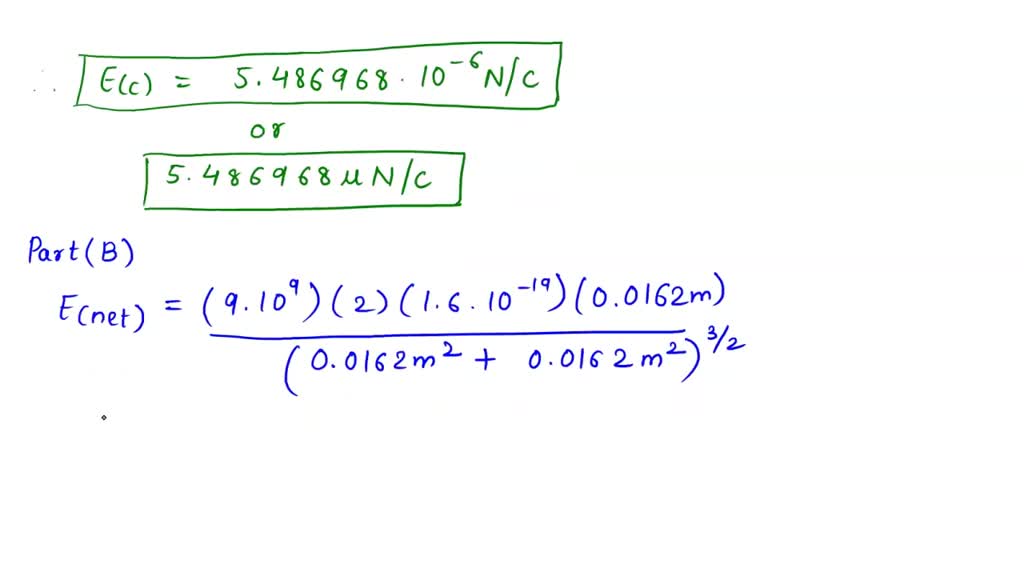 ∴ E(c) = 5.486968 · 10^-6 N/C
or
5.486968 μ N/C
Part(B)
E(net) = (9.10^9)(2)(1.6.10^-19)(0.0162m)
(0.0162m^2 + 0.0162m^2)^3/2